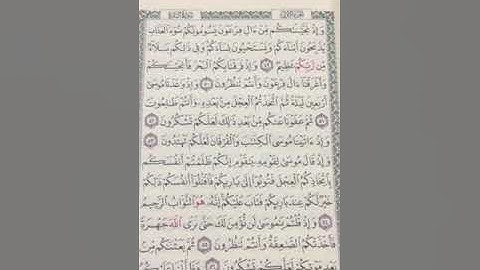 وَإِذْ نَجَّيْنَٰكُم مِّنْ ءَالِ فِرْعَوْنَ يَسُومُونَكُمْ سُوٓءَ ٱلْعَذَابِ
يُذَبِّحُونَ أَبْنَآءَكُمْ وَيَسْتَحْيُونَ نِسَآءَكُمْ وَفِى ذَٰلِكُم بَلَآءٌ
مِّن رَّبِّكُمْ عَظِيمٌ ٤٩ وَإِذْ فَرَقْنَا بِكُمُ ٱلْبَحْرَ فَأَنجَيْنَٰكُمْ
وَأَغْرَقْنَآ ءَالَ فِرْعَوْنَ وَأَنتُمْ تَنظُرُونَ ٥٠ وَإِذْ وَٰعَدْنَا مُوسَىٰٓ
أَرْبَعِينَ لَيْلَةً ثُمَّ ٱتَّخَذْتُمُ ٱلْعِجْلَ مِنۢ بَعْدِهِۦ وَأَنتُمْ ظَٰلِمُونَ
٥١ ثُمَّ عَفَوْنَا عَنكُم مِّنۢ بَعْدِ ذَٰلِكَ لَعَلَّكُمْ تَشْكُرُونَ ٥٢
وَإِذْ ءَاتَيْنَا مُوسَى ٱلْكِتَٰبَ وَٱلْفُرْقَانَ لَعَلَّكُمْ تَهْتَدُونَ ٥٣
وَإِذْ قَالَ مُوسَىٰ لِقَوْمِهِۦ يَٰقَوْمِ إِنَّكُمْ ظَلَمْتُمْ أَنفُسَكُم
بِٱتِّخَاذِكُمُ ٱلْعِجْلَ فَتُوبُوٓا۟ إِلَىٰ بَارِئِكُمْ فَٱقْتُلُوٓا۟ أَنفُسَكُمْ ذَٰلِكُمْ
خَيْرٌ لَّكُمْ عِندَ بَارِئِكُمْ فَتَابَ عَلَيْكُمْ إِنَّهُۥ هُوَ ٱلتَّوَّابُ ٱلرَّحِيمُ
٥٤ وَإِذْ قُلْتُمْ يَٰمُوسَىٰ لَن نُّؤْمِنَ لَكَ حَتَّىٰ نَرَى ٱللَّهَ جَهْرَةً
فَأَخَذَتْكُمُ ٱلصَّٰعِقَةُ وَأَنتُمْ تَنظُرُونَ ٥٥ ثُمَّ بَعَثْنَٰكُم مِّنۢ
بَعْدِ مَوْتِكُمْ لَعَلَّكُمْ تَشْكُرُونَ ٥٦